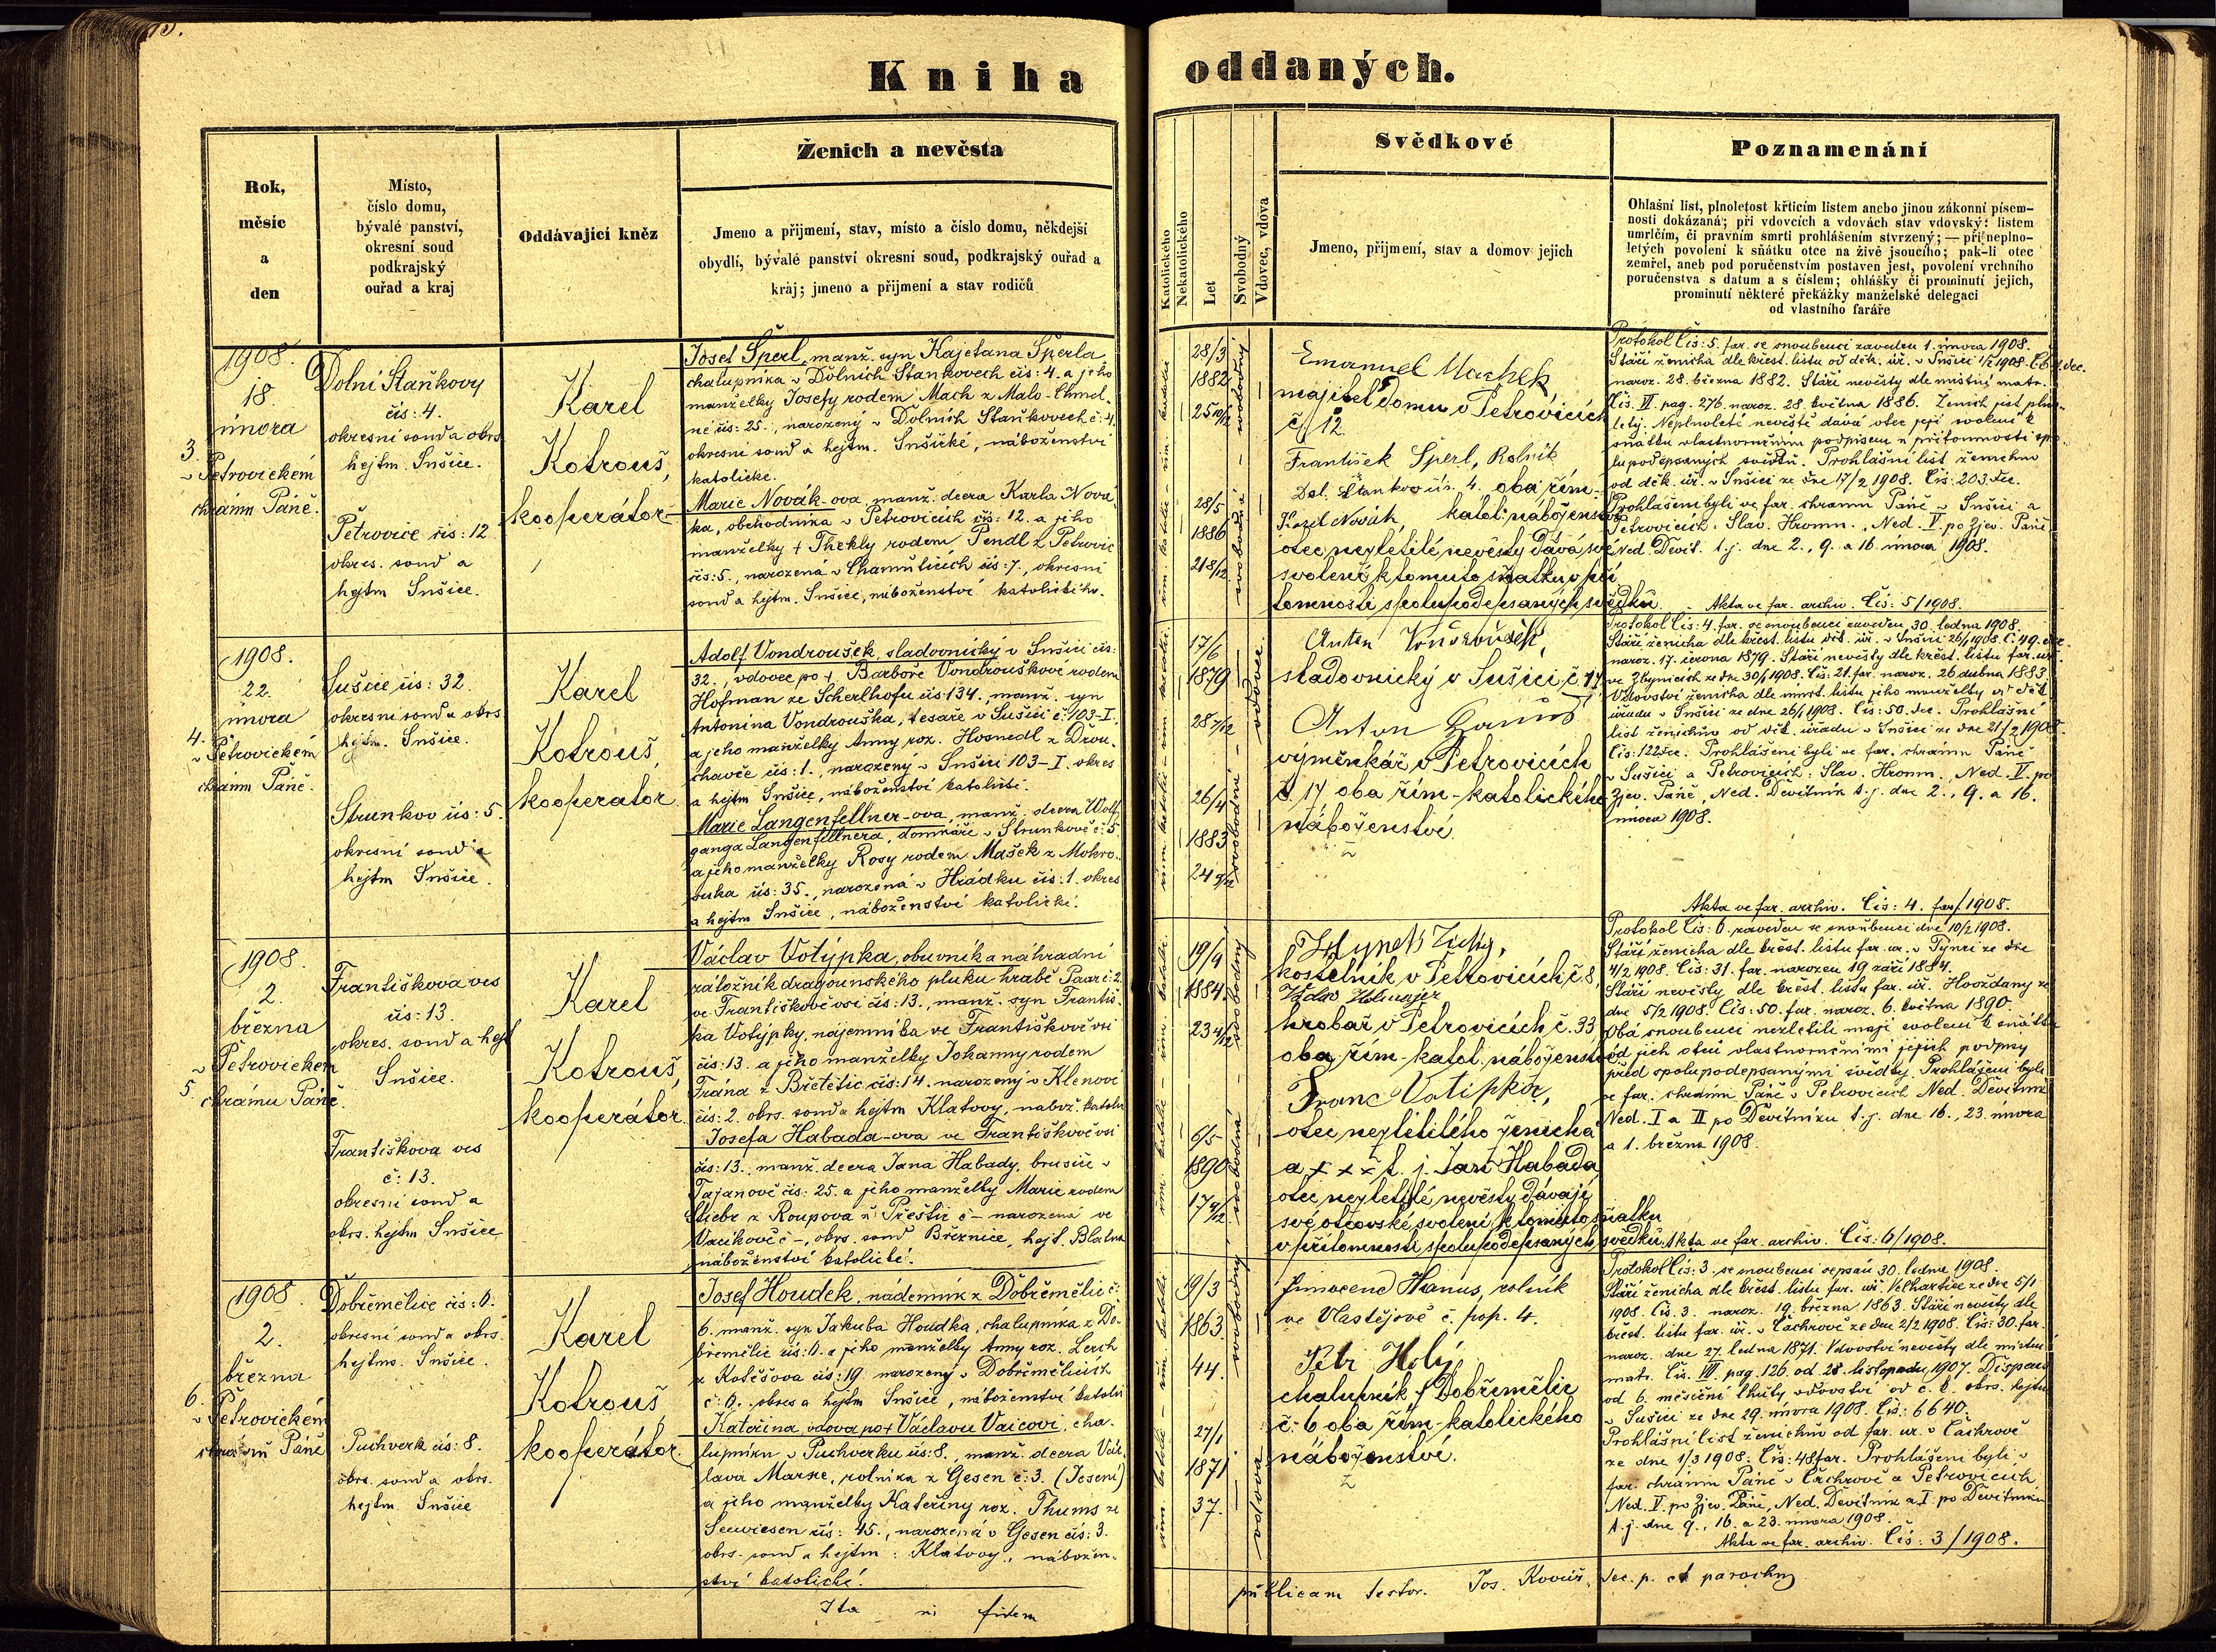 Kniha oddaných.
Rok,
měsíc
a
den
Místo,
číslo domu,
bývalé panství,
okresní soud
podkrajský
ouřad a kraj
Oddávající kněz
Ženich a nevěsta
Jmeno a přijmení, stav, místo a číslo domu, někdejší
obydlí, bývalé panství okresní soud, podkrajský ouřad a
kraj; jmeno a přijmení a stav rodičů
Katolického
Nekatolického
Let
Svobodný
Vdovec, vdova
Svědkové
Jmeno, přijmení, stav a domov jejich
Poznamenání
Ohlašní list, plnoletost křticím listem anebo jinou zákonní písem-
nosti dokázaná; při vdovcích a vdovách stav vdovský: listem
umrlčím, či pravním smrti prohlášením stvrzený; — při neplno-
letých povolení k sňátku otce na živě jsoucího; pak-li otec
zemřel, aneb pod poručenstvím postaven jest, povolení vrchního
poručenstva s datum a s číslem; ohlášky či prominutí jejich,
prominutí některé překážky manželské delegací
od vlastního faráře
1908.
18.
února
3.
v Petrovickém
chrámu Páně.
Dolní Staňkovy
čís: 4.
okresní soud a okrs.
hejtm. Sušice.
Petrovice čís: 12
okres. soud a
hejtm Sušice.
Karel
Kotrouš,
kooperátor
Josef Šperl, manž. syn Kajetana Šperla
chalupníka v Dolních Staňkovech čís: 4. a jeho
manželky Josefy rodem Mach z Malo-Chmel-
né čís: 25., narozený v Dolních Staňkovech č: 4.
okresní soud a hejtm. Sušické, náboženství
katolické.
Marie Novák-ova, manž. dcera Karla Nová-
ka, obchodníka v Petrovicích čís: 12. a jeho
manželky + Thekly rodem Pendl z Petrovic
čís: 5., narozená v Chamuticích čís: 7., okresní
soud a hejtm. Sušice, náboženství katolického.
28/3
1882
25 10/12
28/5
1886
21 8/12
Emanuel Machek
majitel domu v Petrovicích
č/ 12.
František Šperl, Rolník
Dol. Staňkov čís. 4. oba řím-
Karel Novák, katol. náboženství
otec nezletilé nevěsty dává své
svolení k tomuto sňatku v pří
tomnosti spolupodepsaných svědků.
Protokol Čís: 5. far. se snoubenci zaveden 1. února 1908.
Stáří ženicha dle křest. listu od děk. úř. v Sušici 1/2 1908.
naroz. 28. března 1882. Stáří nevěsty dle místní matr.
Čís. VI. pag. 276. naroz. 28. května 1886. Ženich jest plno-
letý. Neplnoleté nevěstě dává otec její svolení k
sňátku vlastnoručním podpisem v přítomnosti spo-
lupodepsaných svědků. Prohlášní list ženichův
od děk. úř. v Sušici ze dne 17/2 1908. Čís: 203. dec.
Prohlášeni byli ve far. chrámu Páně v Sušici a
Petrovicích: Slav. Hromn., Ned. V. po Zjev. Páně
Ned. Devít. t.j. dne 2., 9. a 16 února 1908.
Akta ve far. archiv. Čís: 5/1908.
1908.
22.
února
4.
v Petrovickém
chrámu Páně.
Sušice čís: 32.
okresní soud a okrs
hejtm. Sušice.
Strunkov čís: 5.
okresní soud a
hejtm Sušice.
Karel
Kotrouš,
kooperator
Adolf Vondroušek, sladovnický v Sušici čís:
32., vdovec po + Barboře Vondrouškové rodem
Hofman ze Scherlhofu čís: 134., manž. syn
Antonína Vondrouška, tesaře v Sušici č: 103-I.
a jeho manželky Anny roz. Hosnedl z Drou-
chavče čís: 1., narozeny v Sušici 103-I. okres
a hejtm Sušice, náboženství katolické.
Marie Langenfellner-ova, manž. dcera Wolf-
ganga Langenfellnera, domkáře v Strunkově č: 5
a jeho manželky Rosy rodem Mašek z Mokro-
suka čís: 35., narozená v Hrádku čís: 1. okres
a hejtm Sušice, náboženství katolické.
17/6
1879
28 7/12
26/4
1883
24 9/12
sladovnický v Sušici č 17
Anton
výměnkář v Petrovicích
č. 17 oba řím-katolického
náboženství.
Protokol Čís: 4. far. se snoubenci zaveden 30. ledna 1908.
Stáří ženicha dle křest. listu děk. úř. v Sušici 26/1 1908. Č: 49. dec.
naroz. 17. června 1879. Stáří nevěsty dle křest. listu far. úř.
ve Zbynicích ze dne 30/1 1908. Čís: 21. far. naroz. 26 dubna 1883.
Vdovství ženicha dle úmrt. listu jeho manželky od děk.
úřadu v Sušici ze dne 26/1 1908. Čís: 50. dec. Prohlášní
list ženichův od děk. úřadu v Sušici ze dne 21/2 1908.
Čís: 122 dec. Prohlášeni byli ve far. chrámu Páně
v Sušici a Petrovicích: Slav. Hromn., Ned. V. po
Zjev. Páně, Ned. Devítník t.j. dne 2., 9. a 16.
února 1908.
Akta ve far. archiv. Čís: 4. far/1908.
1908
2.
března
5.
v Petrovickém
chrámu Páně.
Františkova ves
čís: 13.
okres. soud a hejt
Sušice.
Františkova ves
č: 13.
okresní soud a
okrs. hejtm Sušice
Karel
Kotrouš,
kooperátor
Václav Votýpka, obuvník a náhradní
záložník dragounského pluku hrabě Paar č: 2.
ve Františkově vsi čís: 13., manž. syn Františ-
ka Votýpky, nájemníka ve Františkově vsi
čís: 13. a jeho manželky Johanny rodem
Frána z Břetětic čís: 14. narozený v Klenové
čís: 2. okrs. soud a hejtm Klatovy, nábož. katolic
Josefa Habada-ova ve Františkově vsi
čís: 13., manž. dcera Jana Habady, brusiče v
Tajanově čís: 25. a jeho manželky Marie rodem
Stiebr z Roupova u Přeštic č - narozená ve
Vacíkově č -, okrs. soud Březnice, hejt. Blatná
náboženství katolické.
19/9
1884
6/5
1890
kostelník v Petrovicích č 8,
hrobař v Petrovicích č. 33
oba řím-katol. náboženství
Franc Votipka,
otec nezletilého ženicha
a x x x t. j. Jan Habada
otec nezletilé nevěsty dávají
své otcovské svolení k tomuto sňatku
v přítomnosti spolupodepsaných svědků.
Protokol Čís: 6. zaveden se snoubenci dne 10/2 1908.
Stáří ženicha dle křest. listu far. úr. v Týnci ze dne
4/2 1908. Čís: 31. far. narozen 19 září 1884.
Stáří nevěsty dle křest. listu far. úř. Hvožďany ze
dne 5/2 1908. Čís: 50. far. naroz. 6. května 1890.
Oba snoubenci nezletilí mají svolení k sňátku
od jich otců vlastnoručními jejich podpisy
před spolupodepsanými svědky. Prohlášeni byli
ve far. chrámu Páně v Petrovicích Ned. Devítník
Ned. I a II po Devítníku t.j. dne 16., 23. února
a 1. března 1908.
Akta ve far. archiv. Čís: 6/1908.
1908.
2.
března
6.
v Petrovickém
Páně
Dobřemělice čís: 6.
okresní soud a okrs.
hejtms. Sušice.
Puchverk čís: 8.
okrs. soud a okrs.
hejtm. Sušice
Karel
Kotrouš
kooperátor
Josef Houdek, nádenník z Dobřemělic č:
6. manž. syn Jakuba Houdka, chalupníka z Do-
břemělic čís: 6. a jeho manželky Anny roz. Lerch
z Kotěšova čís: 19. narozený v Dobřemělicích
č: 6. okres a hejtm Sušice, náboženství katolic
Kateřina, vdova po + Václavu Vaicovi, cha-
lupníku v Puchverku čís: 8., manž. dcera Vác-
lava Marsse, rolníka z Gesen č: 3. (Jesení)
a jeho manželky Kateřiny roz. Thums ze
Seewiesen čís: 45., narozená v Gesen čís: 3.
okrs. soud a hejtm: Klatovy, nábožen-
ství katolické.
19/3
1863.
44.
27/1
1871
37.
Innocenc Hanus, rolník
ve Vlastějově č. pop. 4.
Petr Holý
chalupník z Dobřemělic
č. 6 oba řím-katolického
náboženství.
Protokol Čís: 3. se snoubenci sepsán 30. ledna 1908.
Stáří ženicha dle křest. listu far. úř. Velhartice ze dne 5/1
1908. Čís. 3. naroz. 19. března 1863. Stáří nevěsty dle
křest. listu far. úř. v Čachrově ze dne 2/2 1908. Čís: 30. far.
naroz. dne 27. ledna 1871. Vdovství nevěsty dle místní
matr. Čís. VII. pag. 126. od 28. listopadu 1907. Dispens
od 6. měsíční lhůty vdovství od c. k. okrs. hejtm
v Sušici ze dne 29. února 1908. Čís: 6640.
Prohlášní list ženichův od far. úr. v Čachrově
ze dne 1/3 1908. Čís: 48 far. Prohlášeni byli v
far. chrámu Páně v Čachrově a Petrovicích
Ned. V. po Zjev. Páně, Ned. Devítník a I. po Devítníku
t.j. dne 9., 16. a 23. února 1908.
Akta ve far. archiv. Čís: 3/1908.
Ita in fidem publicam testor. Jos. Kovář, dec. p. et parochus